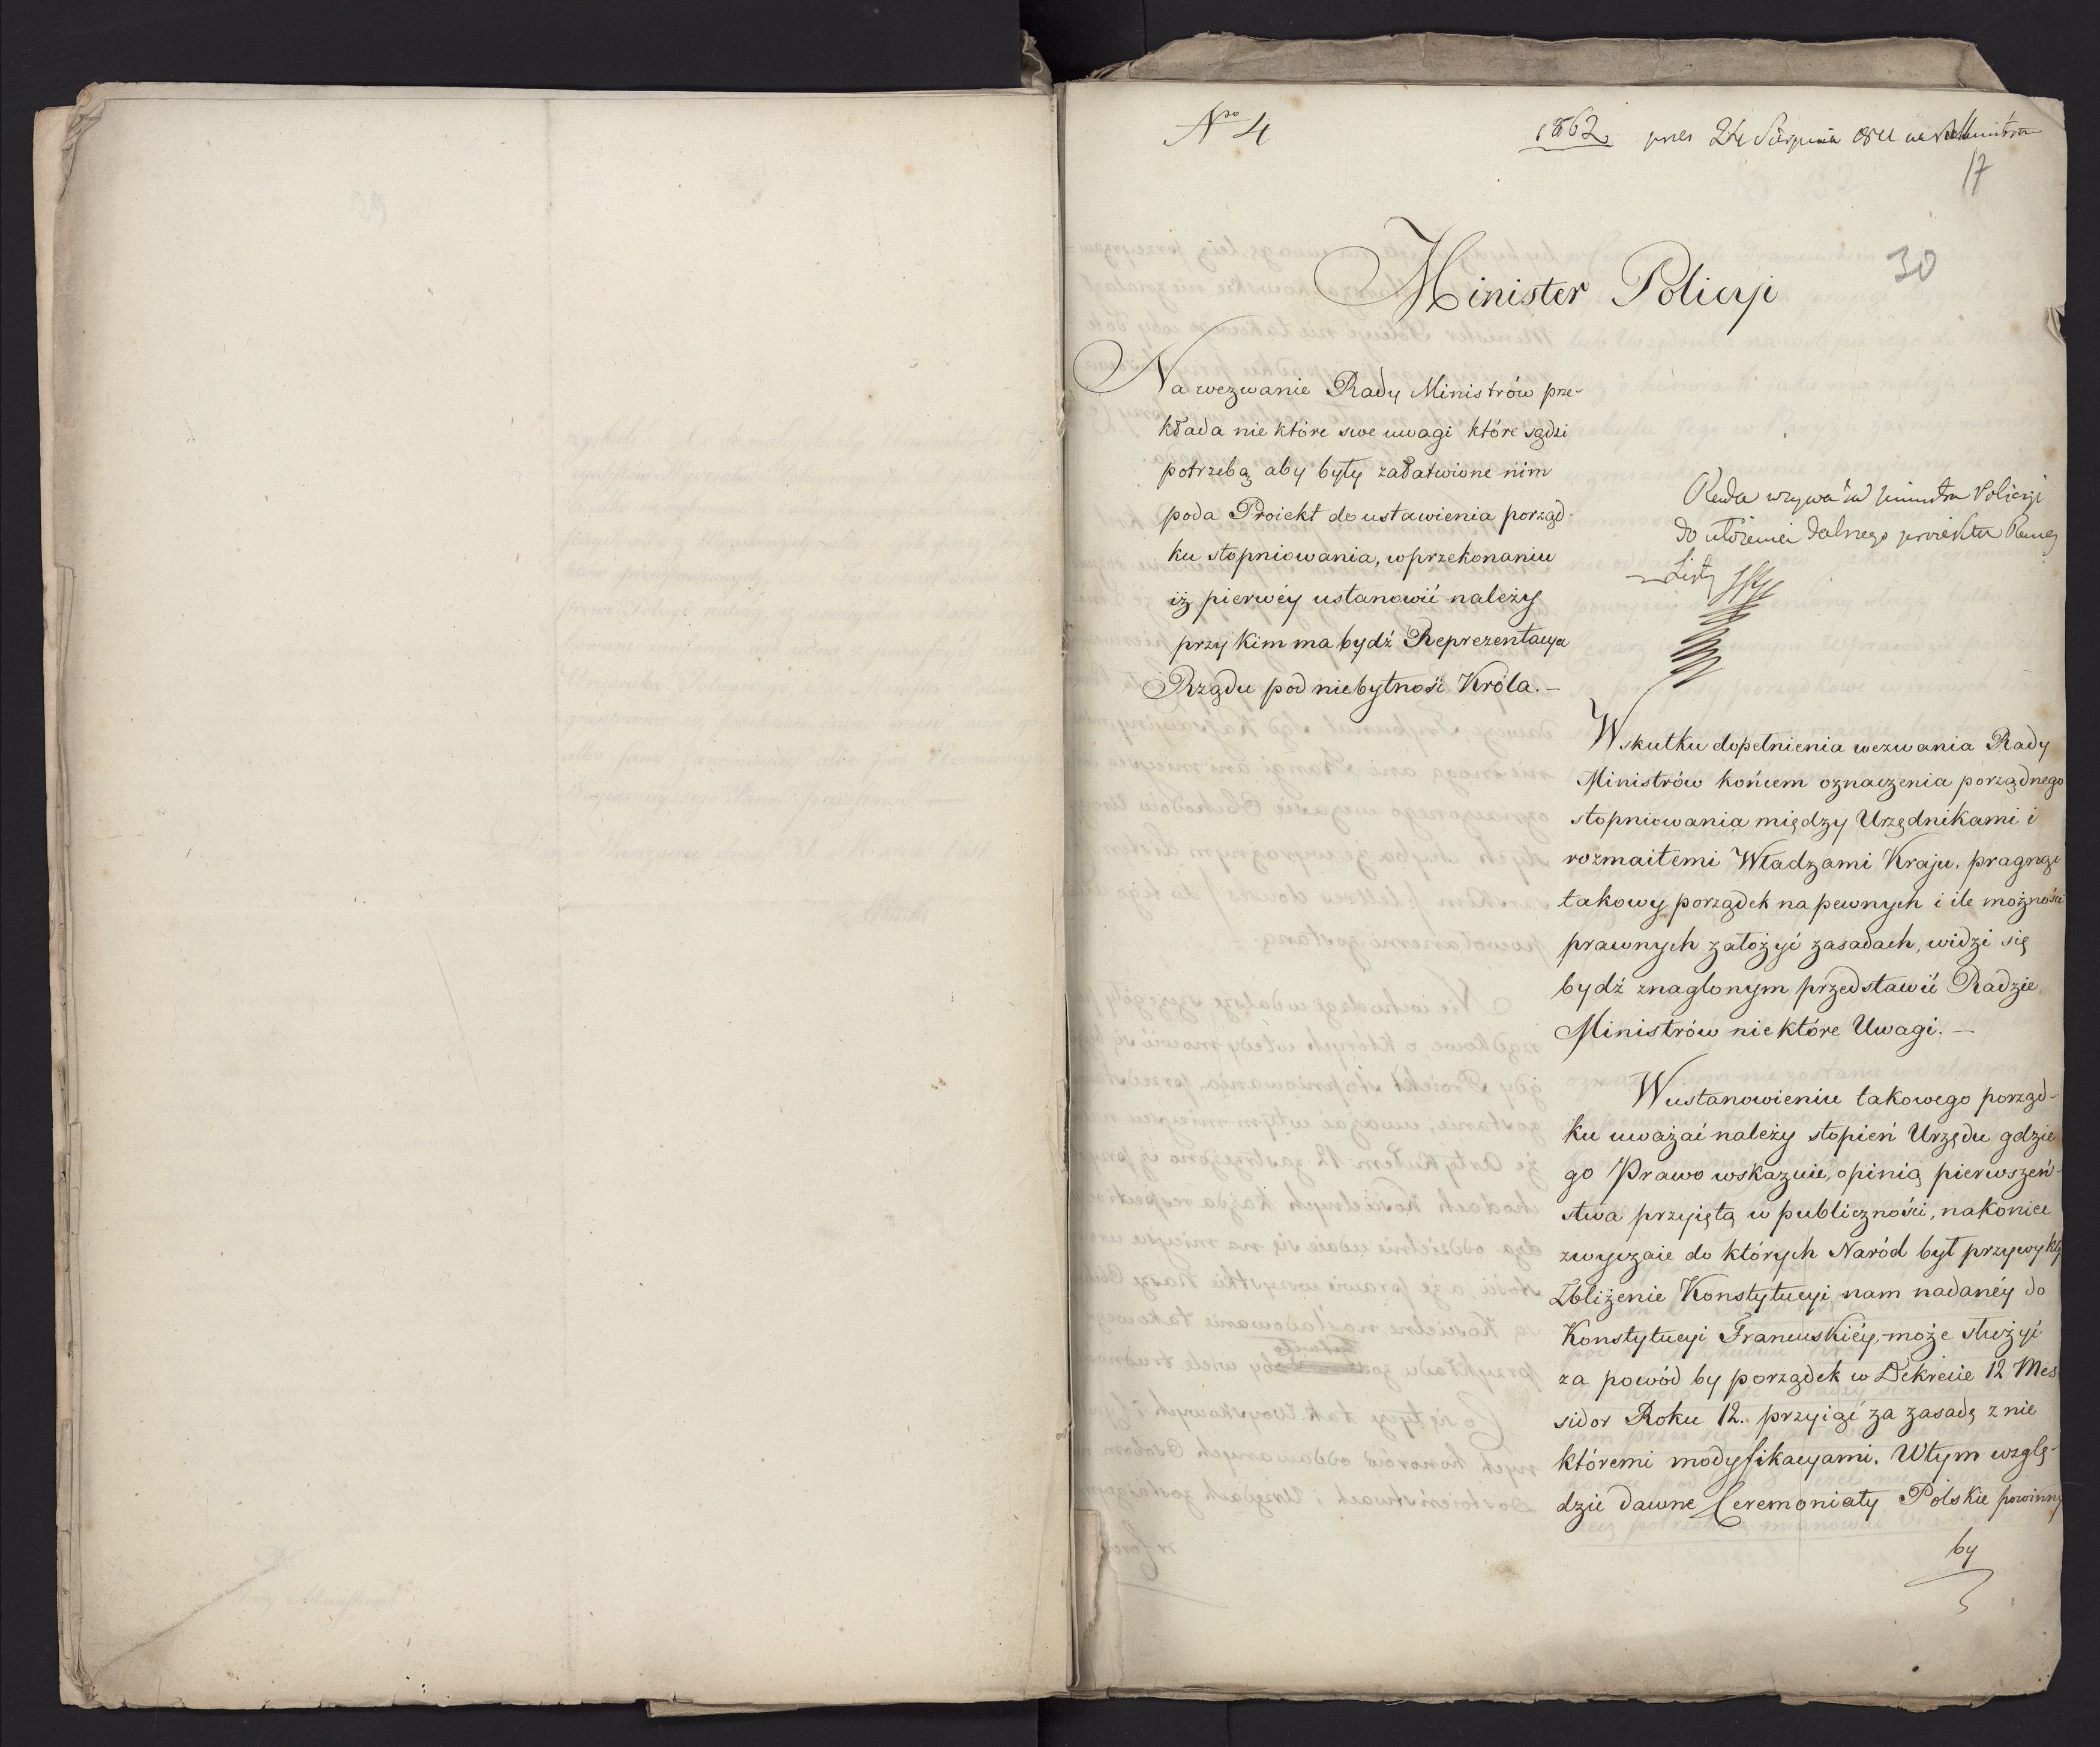 Nro 4
1862 pres 24 Sierpnia
17
30
Minister Policyi
Na wezwanie Rady Ministrów prze-
kłada nie które swe uwagi które sądzi
potrzebą aby były załatwione nim
poda Proiekt do ustawienia porząd-
ku stopniowania, w przekonaniu
iż pierwéy ustanowić należy
przy kim ma bydź Reprezentacya
Rządu pod niebytność Króla. —
Rada wzywa Ministra Policyi
do ułożenia dalszego proiektu
Listy
W skutku dopełnienia wezwania Rady
Ministrów końcem oznaczenia porządnego
stopniowania między Urzędnikami i
rozmaitemi Władzami Kraju, pragnąc
takowy porządek na pewnych i ile możności
prawnych założyć zasadach, widzi się
bydź znaglonym przedstawić Radzie
Ministrów nie które Uwagi. —
W ustanowieniu takowego porząd-
ku uważać należy stopień Urzędu gdzie
go Prawo wskazuie, opinią pierwszeń-
stwa przyiętą w publiczności, nakoniec
zwyczaie do których Naród był przywykły
Zbliżenie Konstytucyi nam nadanéy do
Konstytucyi Francuskiéy, może służyć
za powód by porządek w Dekrecie 12 Mes-
sidor Roku 12. przyiąć za zasadę z nie
któremi modyfikacyami. W tym wzglę-
dzie dawne Ceremoniały Polskie powinny
by